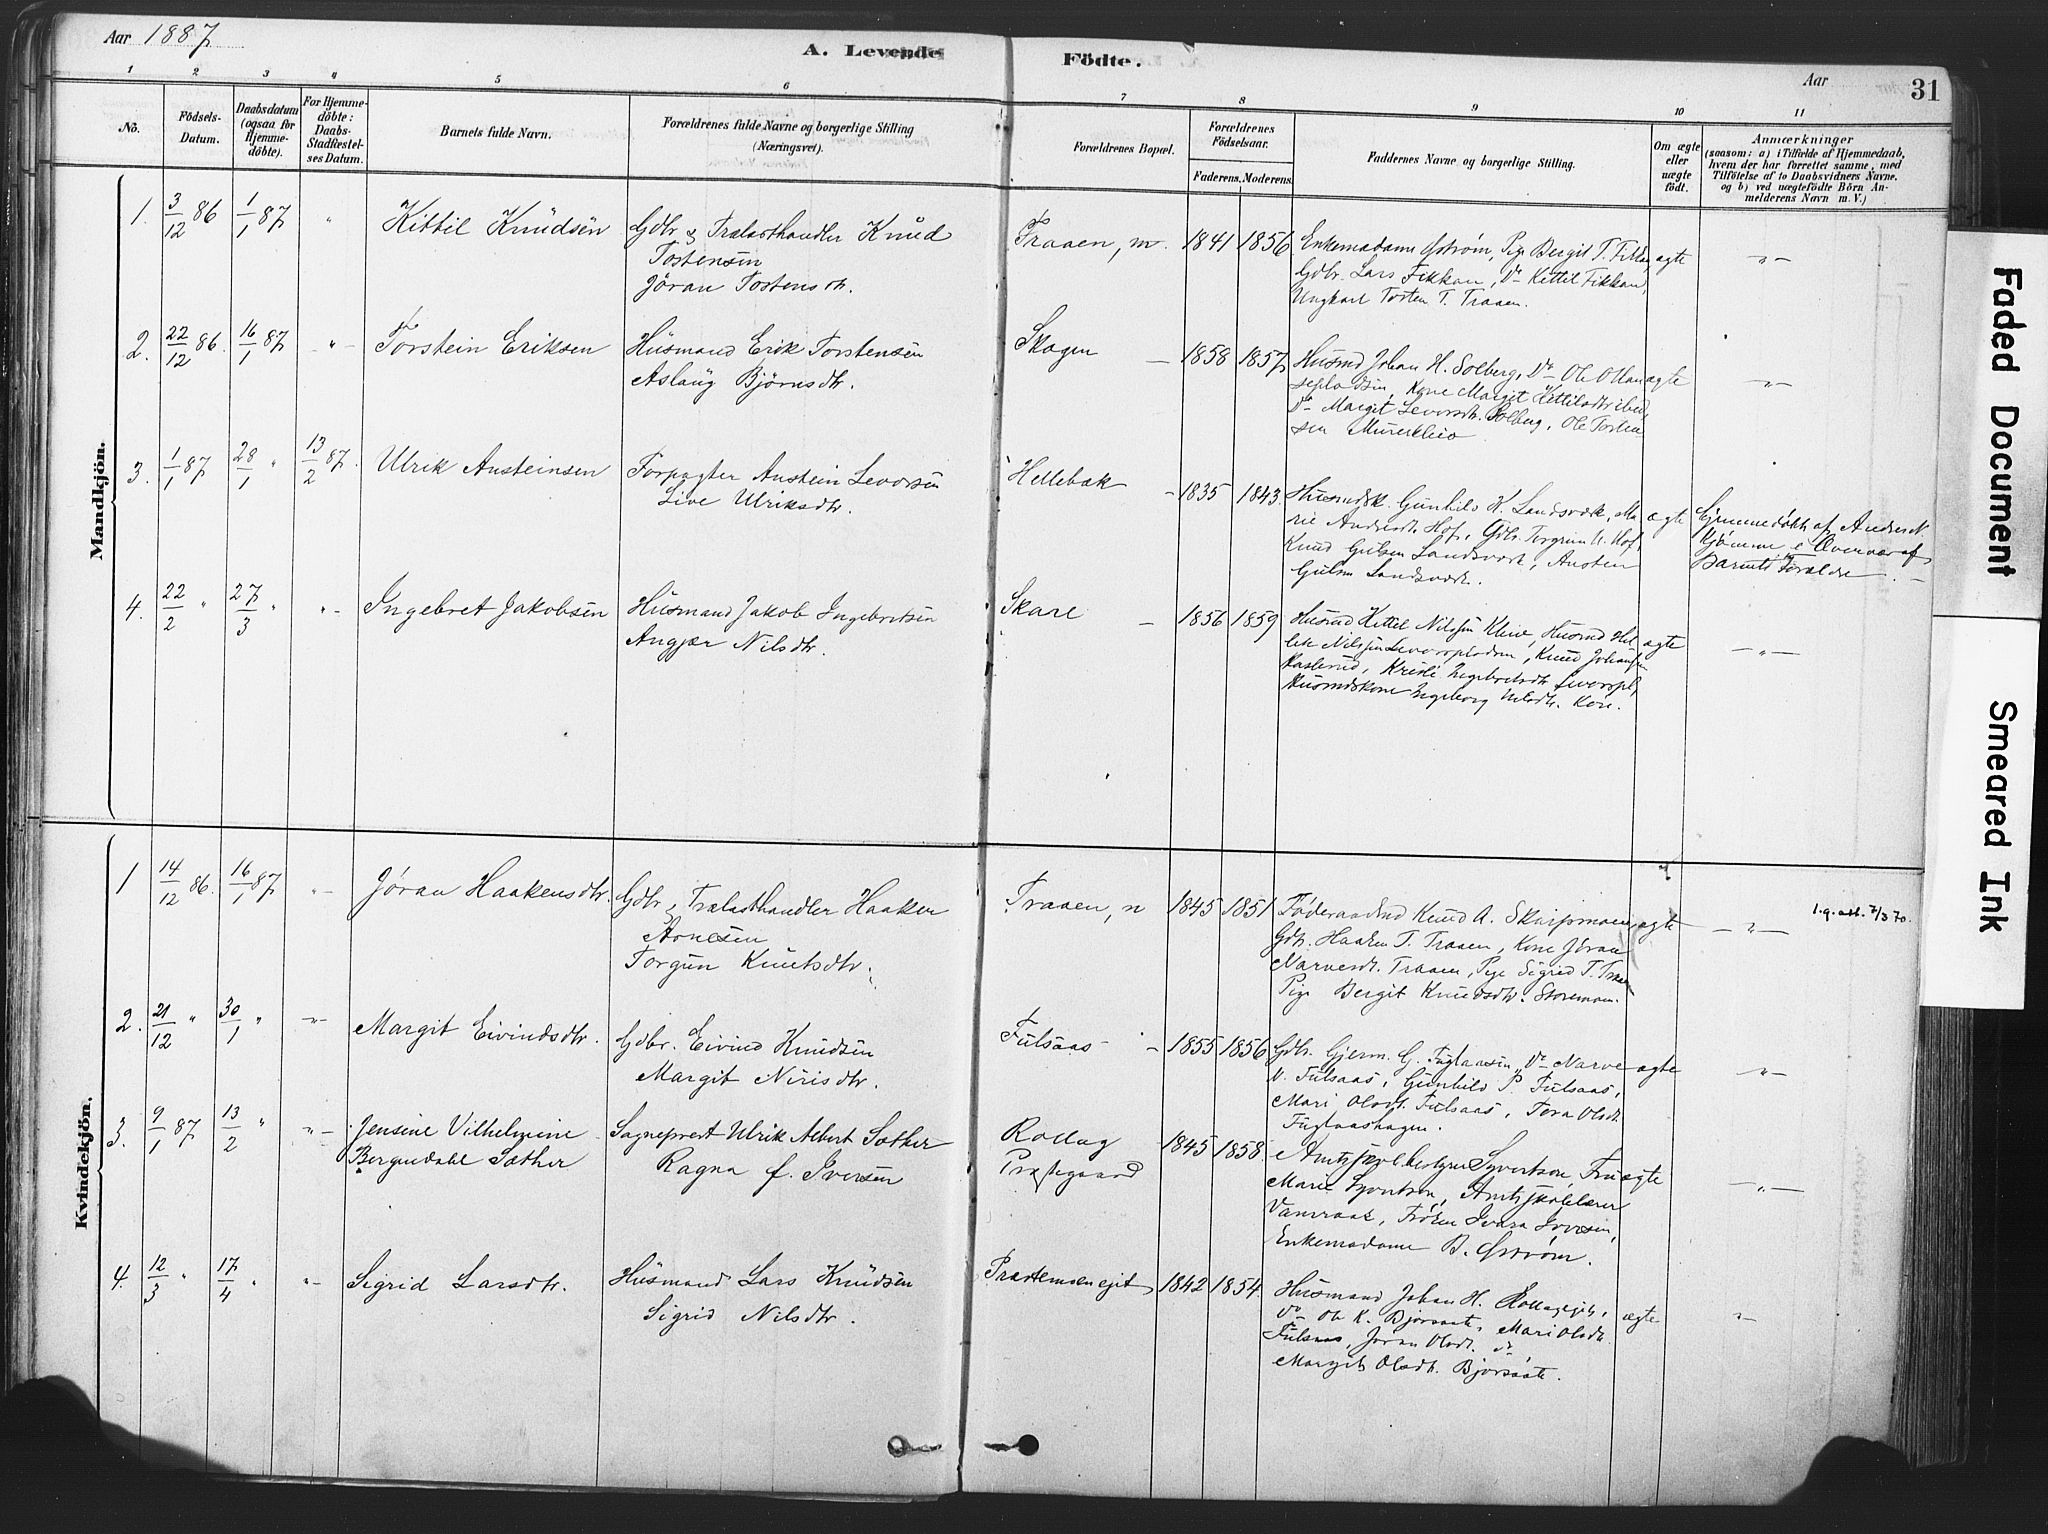 Aar 1887
A. Levende Födte.
Aar
31
1 2 3 4 5 6 7 8 9 10 11
No.
Födsels-
Datum.
Daabsdatum
(ogsaa for
Hjemme-
döbte).
For Hjemme-
döbte:
Daabs-
Stadfæstel-
ses Datum.
Barnets fulde Navn.
Forældrenes fulde Navne og borgerlige Stilling
(Næringsvei).
Forældrenes Bopæl.
Forældrenes
Födselsaar.
Faderens. Moderens.
Faddernes Navne og borgerlige Stilling.
Om ægte
eller
uægte
födt.
Anmærkninger
(saasom: a) i Tilfælde af Hjemmedaab,
hvem der har forrettet samme, med
Tilföielse af to Daabsvidners Navne.
og b) ved uægtefödte Börn An-
melderens Navn m. V.)
Mandkjön.
1. 3/12 86 1/1 87 " Kittil Knudsen
Gdbr & Trælasthandler Knud
Tostensen
Jöran Tostensdtr.
Traaen, m. 1841 1856
Enkemadame Østrøm, Pige Bergit T. Fikkan
Gdbr. Lars Fikkan, Do Kittil Fikkan,
Ungkarl Tosten T. Traaen.
ægte -"-
2. 22/12 86. 16/1 87 -"- Torstein Eriksen
Husmand Erik Torstensen
Aslaug Björnsdtr.
Skogen - 1858 1857
Husmd Johan H. Solberg, Do Ole O
Kone Margit Kittilsdtr ibid,
Do Margit Levorsdtr. Solberg, Ole Torsten
sen
ægte -"-
3. 1/1 87 28/1 " 13/2 87. Ulrik Austeinsen
Forpagter Austein Levorsen
Live Ulriksdtr.
Hellebæk - 1835 1843.
Husmdsk. Gunhild K. Landsværk, Ma
rie Andersdtr Hof, Gdbr. Torgrim U. Hof,
Knud Gulsen Landsværk, Austen
Gulsen Landsværk.
ægte
Hjemmedøbt af Anders N
Kjømme i Overvær af
Barnets Forældre. -
4. 22/2 " 27/3 " "- Ingebret Jakobsen
Husmand Jakob Ingebretsen
Angjær Nilsdtr.
Skare - 1856 1859
Husmd Kittil Nilssen Kleiv, Husmd Hel
lek Nilssen Levorsplads, Knud Johansen
Haslerud, Kristi Ingebretsdtr Levorspl,
Husmdskone Ingeborg Nilsdtr.
ægte -"-
Kvindekjön.
1 14/12 86. 16/1 87 "- Jøran Haakensdtr.
Gdbr & Trælasthandler Haaken
Aonesen
Torgun Knutsdtr.
Traaen, n 1845 1851
Føderaadsmd Knud A. Skarpmoen,
Gdbr. Haaken T. Traaen, Kone Jöran
Narvesdtr. Traaen, Pige Sigrid T. Traaen
Pige Bergit Knudsdtr. Storemoen.
ægte -"- 1.g.att. 7/3 70.
2. 21/12 " 30/1 " -"- Margit Eivindsdtr.
Gdbr. Eivind Knudsen
Margit Nirisdtr.
Fulsaas - 1855 1856
Gdbr. Gjerm. G. Fuglaasen, Do Narve
N. Fulsaas, Gunhild P. Fulsaas,
Mari Olsdtr. Fulsaas, Tora Olsdtr.
Fuglaashagen.
ægte -"-
3. 9/1 87 13/2 " -"- Jensine Vilhelmine
Bergendahl Sæther
Sogneprest Ulrik Albert Sæther
Ragna f. Iversen
Rollag
Præstegaard
1845 1858.
Amtsskolebestyrer Syvertsen, Fru
Marie Syvertsen, Amtsskolelærer
Vamraak, Frøken Ivara Iversen,
Enkemadame B. Østrøm.
ægte -"-
4. 12/3 " 17/4 " "- Sigrid Larsdtr.
Husmand Lars Knudsen
Sigrid Nilsdtr.
Præstemoen ejet 1842 1854.
Husmand Johan H. Rollagejet,
Do Ole K. Bjørsaate, Mari Olsdtr.
Fulsaas, Jøran Olsdtr. do
Margit Olsdtr. Bjørsaate.
ægte "-
Faded Document
Smeared Ink